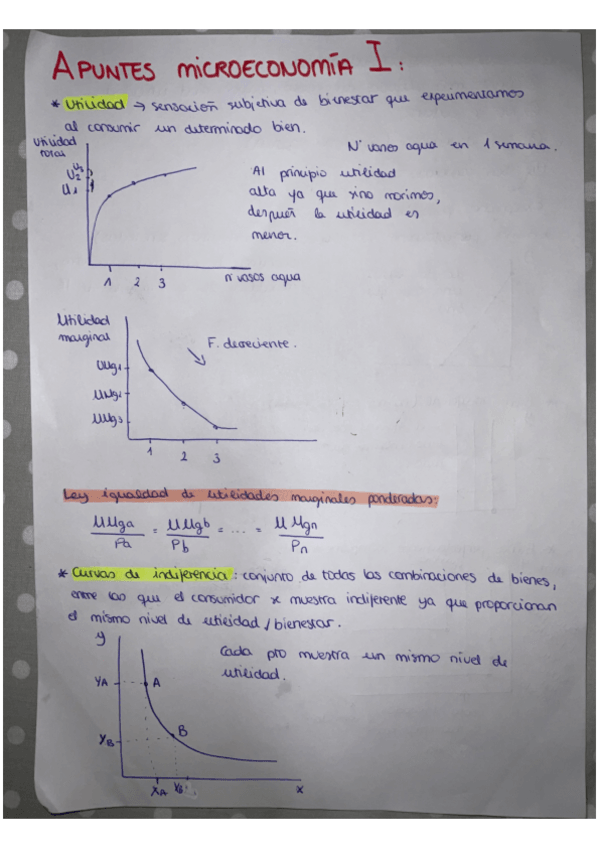 APUNTES MICROECONOMÍA I:
* Utilidad → sensación subjetiva de bienestar que experimentamos
al consumir un determinado bien.
Utilidad
total
Nº vasos agua en 1 semana.
U3
U2
U1
Al principio utilidad
alta ya que sino morimos,
después la utilidad es
menor.
1 2 3 nº vasos agua
Utilidad
marginal
F. decreciente.
UMg1
UMg2
UMg3
1 2 3
Ley igualdad de utilidades marginales ponderadas:
UMga/Pa = UMgb/Pb = .... = UMgn/Pn
* Curvas de indiferencia: conjunto de todas las combinaciones de bienes,
entre las que el consumidor x muestra indiferente ya que proporcionan
el mismo nivel de utilidad/bienestar.
y
Cada pto muestra un mismo nivel de
utilidad.
YA A
YB B
XA XB x